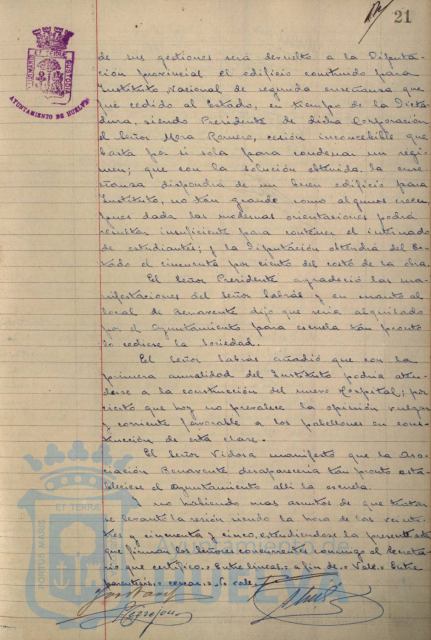 21
AYUNTAMIENTO DE HUELVA
de sus gestiones será devuelto a la Diputa-
ción provincial el edificio construido para
Instituto Nacional de segunda enseñanza que
fué cedido al Estado, en tiempo de la Dicta-
dura, siendo Presidente de dicha Corporación
el Señor Mora Romero, cesión inconcebible que
basta por si sola para condenar un regi-
men; que con la solución obtenida la ense-
ñanza dispondrá de un buen edificio para
Instituto, no tan grande como algunos creen
pues dada las modernas orientaciones podrá
resultar insuficiente para contener el internado
de estudiantes; y la Diputación obtendrá del Es-
tado el cincuenta por ciento del costo de la obra.
El Señor Presidente agradeció las ma-
nifestaciones del Señor Labrás y en cuanto al
local de Benavente dijo que sería alquilado
por el Ayuntamiento para escuela tan pronto
lo cediese la Sociedad.
El Señor Labras añadió que con la
primera anualidad del Instituto podria aten-
derse a la construcción del nuevo Hospital; por
cierto que hoy no prevalece la opinión vulgar
y corriente favorable a los pabellones en cons-
trucción de esta clase.
El Señor Vidosa manifestó que la Aso-
ciación Benavente desaparecería tan pronto esta-
bleciese el Ayuntamiento alli la escuela.
Y no habiendo mas asuntos de que tratar
se levantó la sesión siendo la hora de las veinti-
tres y cincuenta y cinco, extendiendose la presente acta
que firman los Señores concurrentes conmigo el Secreta-
rio que certifico.= Entre lineas = a fin de = Vale = Entre
parentesis = = No vale.
PORTUS MARIS ET TERRAE
HUELVA